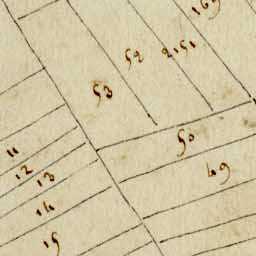 169
52
2151
53
50
11
49
12
13
14
15